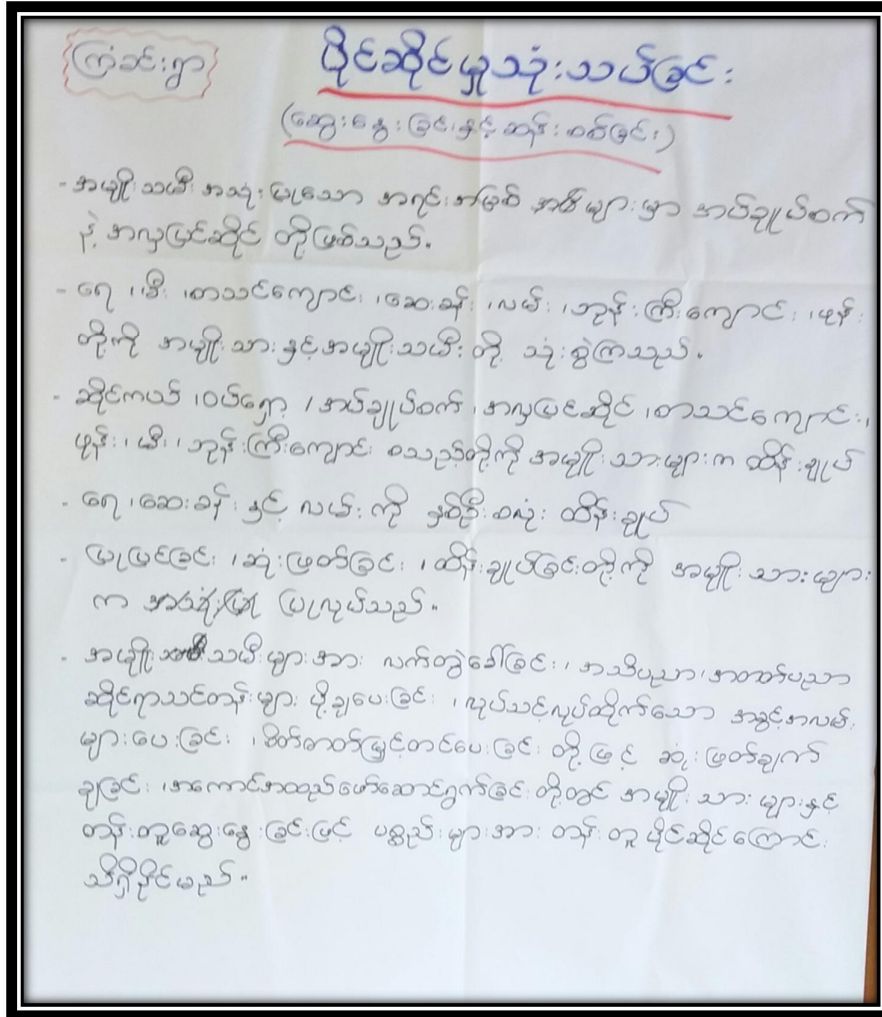 ကြံခင်းရွာ
ပိုင်ဆိုင်မှုသုံးသပ်ခြင်း
(ဆွေးနွေးခြင်းနှင့် ဆန်းစစ်ခြင်း)
- အမျိုးသမီး အသုံးပြုသော အရင်းအမြစ် အဓိများမှာ အပ်ချုပ်စက်
နဲ့ အလှပြင်ဆိုင် တို့ဖြစ်သည်။
- ရေ ၊ မီး ၊ စာသင်ကျောင်း ၊ ဆေးခန်း ၊ လမ်း ၊ ဘုန်းကြီးကျောင်း ၊ ဖုန်း
တို့ကို အမျိုးသားနှင့်အမျိုးသမီးတို့ သုံးစွဲကြသည်။
- ဆိုင်ကယ် ၊ ဝပ်ရှော့ ၊ အပ်ချုပ်စက် ၊ အလှပြင်ဆိုင် ၊ စာသင်ကျောင်း ၊
ဖုန်း ၊ မီး ၊ ဘုန်းကြီးကျောင်း စသည့်တို့ကို အမျိုးသားများက ထိန်းချုပ်
- ရေ ၊ ဆေးခန်း နှင့် လမ်း ကို နှစ်ဦးစလုံး ထိန်းချုပ်
- ပြုပြင်ခြင်း ၊ ဆုံးဖြတ်ခြင်း ၊ ထိန်းချုပ်ခြင်းတို့ကို အမျိုးသားများ
က ပြုလုပ်သည်။
- အမျိုးသမီးများအား လက်တွဲခေါ်ခြင်း ၊ အသိပညာ ၊ အတတ်ပညာ
ဆိုင်ရာသင်တန်းများ ပို့ချပေးခြင်း ၊ လုပ်သင့်လုပ်ထိုက်သော အခွင့်အလမ်း
များပေးခြင်း ၊ စိတ်ဓာတ်မြှင့်တင်ပေးခြင်း တို့ဖြင့် ဆုံးဖြတ်ချက်
ချခြင်း ၊ အကောင်အထည်ဖော်ဆောင်ရွက်ခြင်းတို့တွင် အမျိုးသားများနှင့်
တန်းတူဆွေးနွေးခြင်းဖြင့် ပစ္စည်းများအား တန်းတူ ပိုင်ဆိုင်ကြောင်း
သိရှိနိုင်မည်။